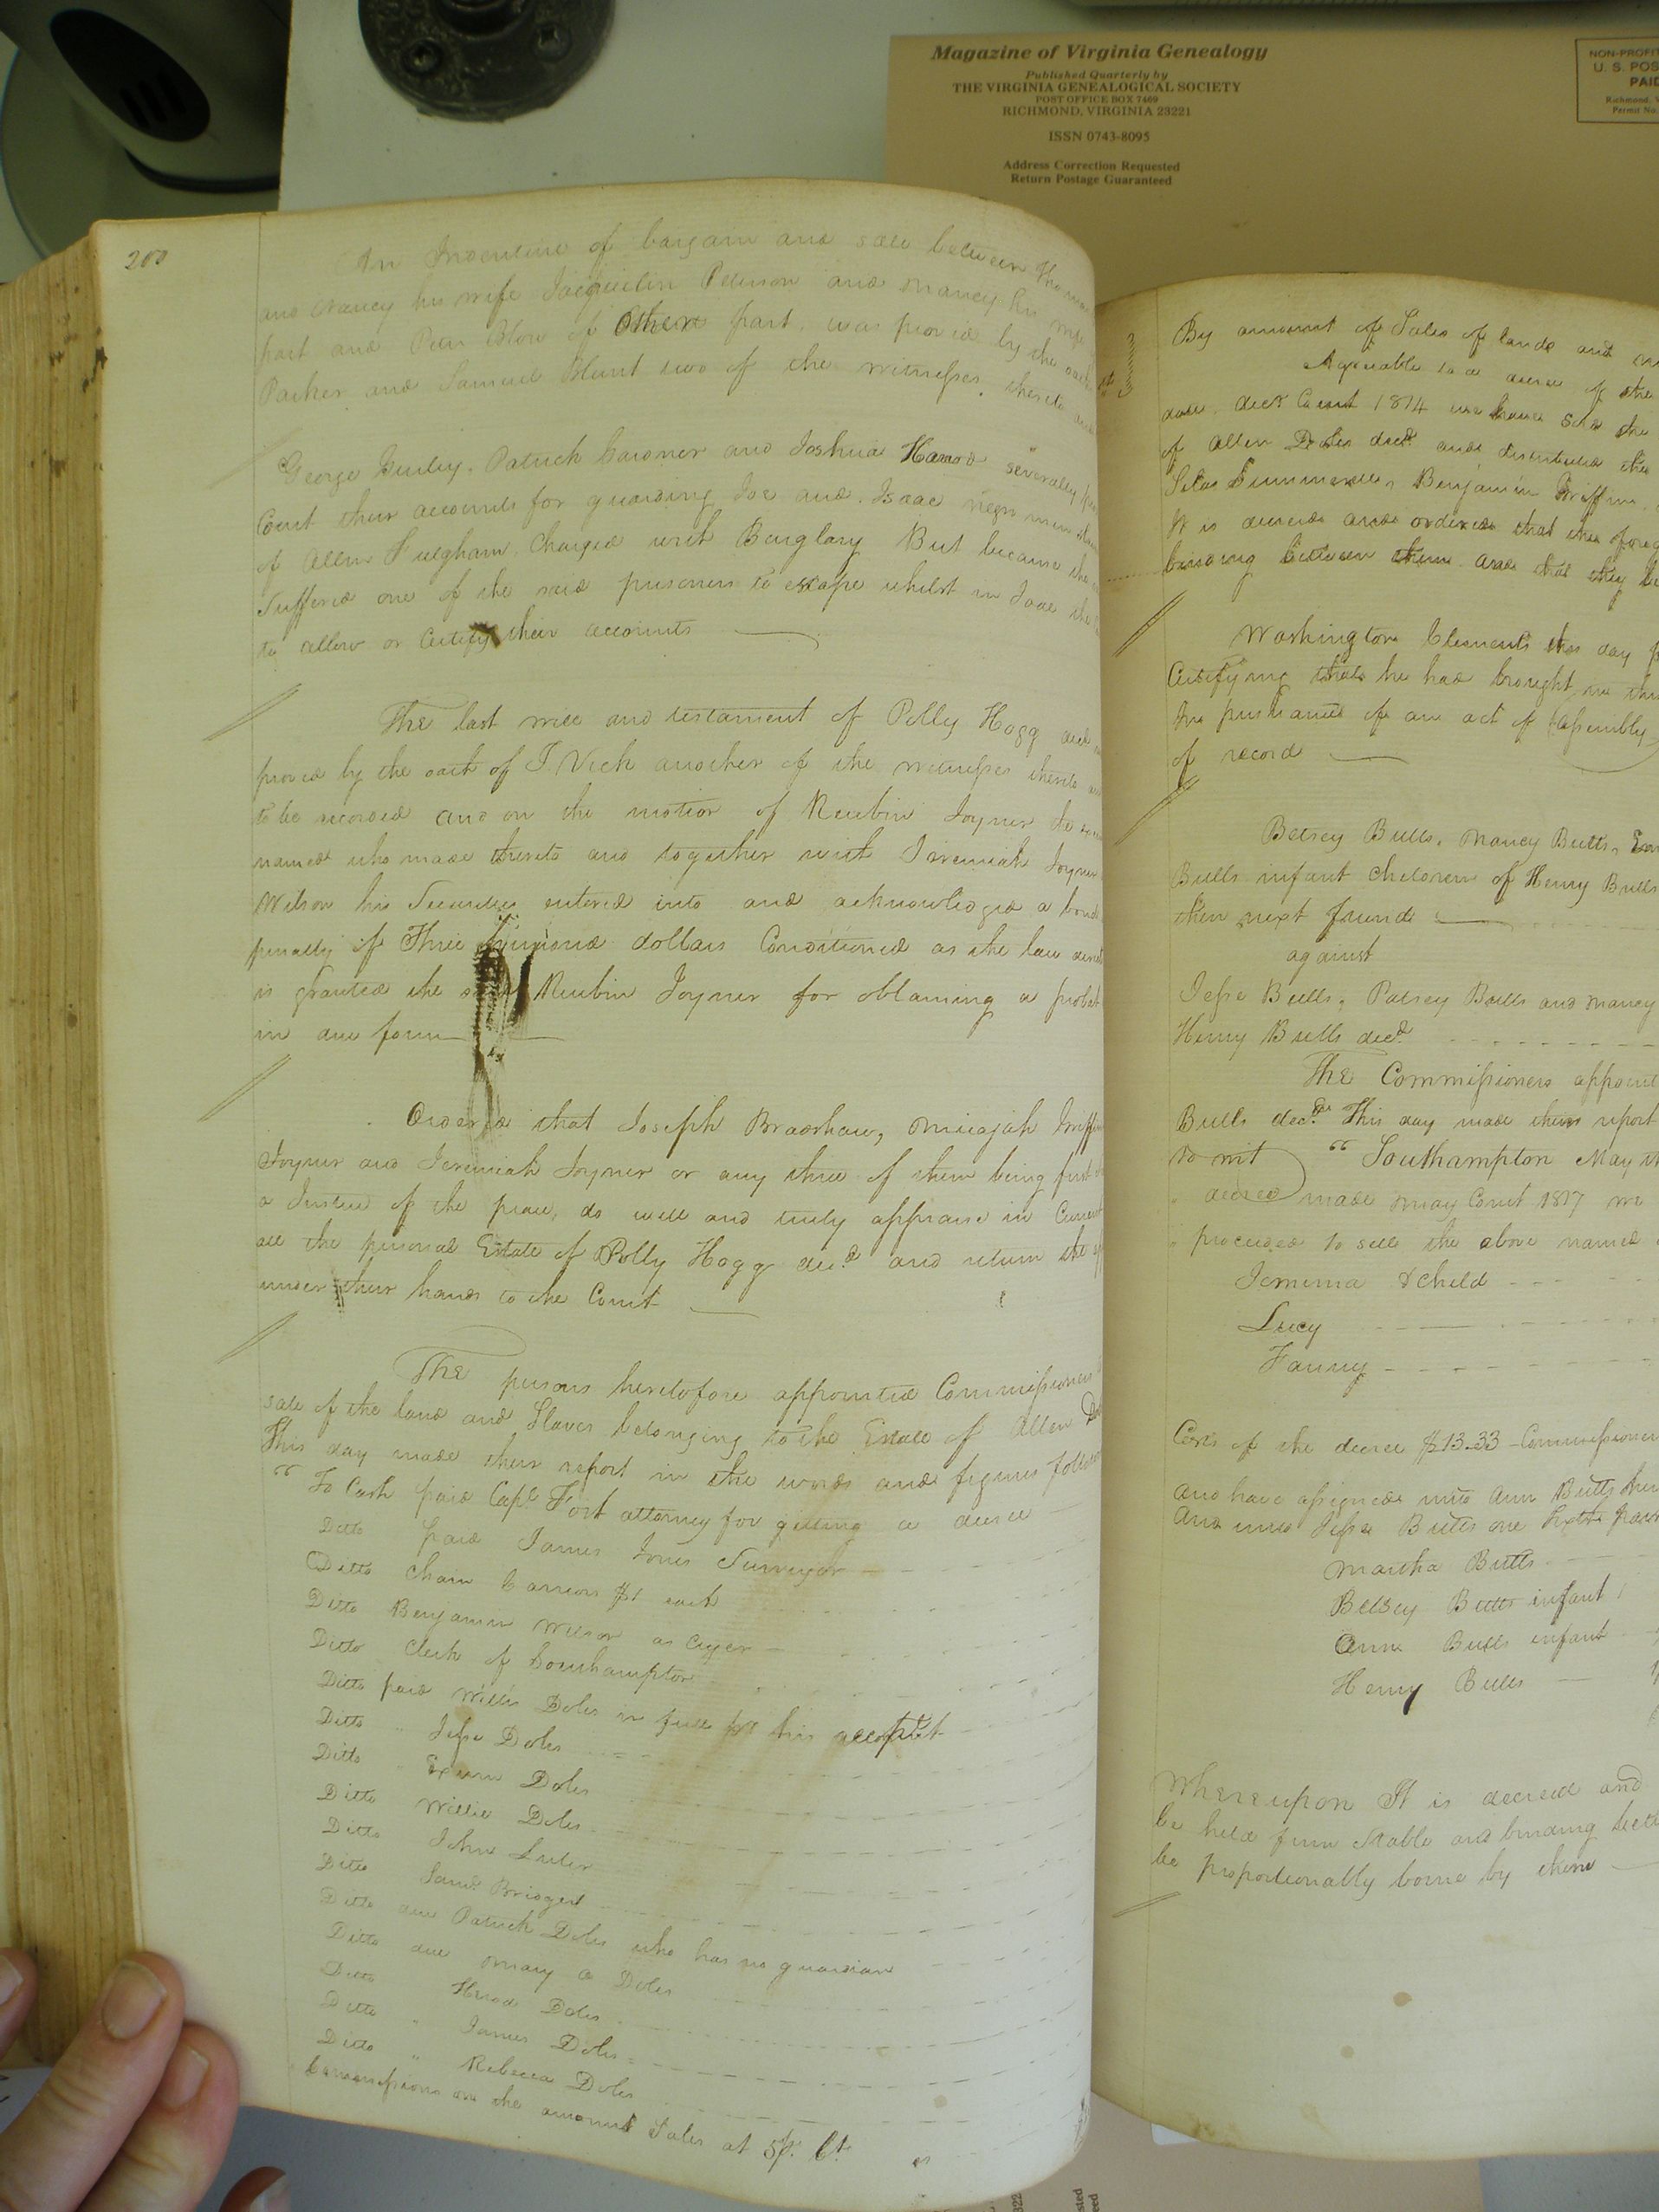 Magazine of Virginia Genealogy
Published Quarterly by
THE VIRGINIA GENEALOGICAL SOCIETY
POST OFFICE BOX 7469
RICHMOND, VIRGINIA 23221
ISSN 0743-8095
Address Correction Requested
Return Postage Guaranteed
NON-PROFIT
U. S. POS
PAID
Richmond, V
Permit No.
200
An Indenture of bargain and sale between Thomas
and Nancy his wife Jacquelin Peterson and Nancy his wife
part and Peter Blow of Other part, was proved by the oath
Parker and Samuel Blunt two of the witnesses thereto and
George Gurley, Patrick Gardner and Joshua Harrod severally
Court their accounts for guarding Joe and Isaac negro men
of Allen Fulgham Charged with Burglary But because the
Suffered one of the said prisoners to escape whilst in Jail the
to allow or Certify their accounts
The last will and testament of Polly Hogg
proved by the oath of J. Vick another of the witnesses thereto
to be recorded and on the motion of Reubin Joyner the
named who made thereto and together with Jeremiah Joyner
Wilson his Securities entered into and acknowledged a bond
penalty of Three Thousand dollars Conditioned as the law
is granted the said Reubin Joyner for obtaining a probat
in due form
Ordered that Joseph Bradshaw, Micajah Griffin
Joyner and Jeremiah Joyner or any three of them being first
a Justice of the peace, do well and truly appraise in Current
all the personal Estate of Polly Hogg decd. and return the
under their hands to the Court
The persons heretofore appointed Commissioners
sale of the land and Slaves belonging to the Estate of Allen
This day made their report in the words and figures
"To Cash paid Capt. Fort attorney for getting a decree
Ditto paid James Jones Surveyor
Ditto Chain Carriers $1 each
Ditto Benjamin Wilson as Cryer
Ditto Clerk of Southampton
Ditto paid Willis Doles in full of his account
Ditto " Jesse Doles
Ditto Exum Doles
Ditto Willie Doles
Ditto John Luter
Ditto Saml. Bridger
Ditto due Patrick Doles who has no guardian
Ditto due Mary a Doles
Ditto Doles
Ditto " James Doles
Ditto " Rebecca Doles
Commissions on the amount Sales at 5 pr. Ct.
By amount of Sales of lands and
Agreeable to a decree of the
date, decr. Court 1814 we have sold the
of Allen Doles decd. and distributed the
Silas Summerell, Benjamin Griffin,
It is decreed and ordered that the
binding between them and that they be
Washington Clements this day
Certifying that he had brought
In pursuance of an act of Assembly
of record
Betsey Butts, Nancy Butts,
Butts infant Children of Henry Butts
their next friend
against
Jesse Butts, Patsey Butts and Nancy
Henry Butts decd.
The Commissioners
Butts decd. This day made their report
to wit "Southampton May
" decree made May Court 1817 we
" proceeded to sell the above named
Jemima & child
Lucy
Fanny
Costs of the decree $13-33 - Commissioners
and have assigned unto Ann Butts her
And unto Jesse Butts one Sixth
Martha Butts
Betsey Butts infant
Ann Butts infant
Henry Butts
Whereupon It is decreed and
be held firm Stable and binding
be proportionably borne by them